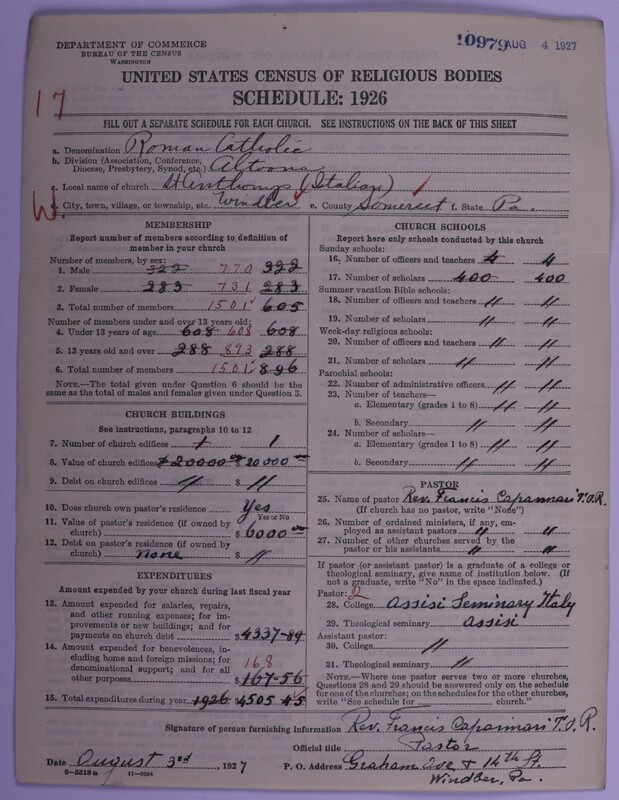 DEPARTMENT OF COMMERCE
BUREAU OF THE CENSUS
WASHINGTON
10979 AUG 4 1927
UNITED STATES CENSUS OF RELIGIOUS BODIES
SCHEDULE: 1926
17
FILL OUT A SEPARATE SCHEDULE FOR EACH CHURCH. SEE INSTRUCTIONS ON THE BACK OF THIS SHEET
a. Denomination Roman Catholic
b. Division (Association, Conference, Diocese, Presbytery, Synod, etc.) Altoona
c. Local name of church St Anthonys (Italian)
W. City, town, village, or township, etc. Windber e. County Somerset f. State Pa.
MEMBERSHIP
Report number of members according to definition of member in your church
Number of members, by sex:
1. Male 322 770 322
2. Female 283 731 283
3. Total number of members 1501 605
Number of members under and over 13 years old:
4. Under 13 years of age 608 608 608
5. 13 years old and over 288 893 288
6. Total number of members 1501 896
NOTE.—The total given under Question 6 should be the same as the total of males and females given under Question 3.
CHURCH BUILDINGS
See instructions, paragraphs 10 to 12
7. Number of church edifices 1 1
8. Value of church edifices $20000 00 $ 20000 00
9. Debt on church edifices " $ "
10. Does church own pastor's residence Yes
Yes or No
11. Value of pastor's residence (if owned by church) $ 6000 00
12. Debt on pastor's residence (if owned by church) none $ "
EXPENDITURES
Amount expended by your church during last fiscal year
13. Amount expended for salaries, repairs, and other running expenses; for improvements or new buildings; and for payments on church debt $ 4337-89
14. Amount expended for benevolences, including home and foreign missions; for denominational support; and for all other purposes 168 $ 167-56
15. Total expenditures during year 1926 $ 4505 45
CHURCH SCHOOLS
Report here only schools conducted by this church
Sunday schools:
16. Number of officers and teachers 4 4
17. Number of scholars 400 400
Summer vacation Bible schools:
18. Number of officers and teachers " "
19. Number of scholars " "
Week-day religious schools:
20. Number of officers and teachers " "
21. Number of scholars " "
Parochial schools:
22. Number of administrative officers " "
23. Number of teachers—
a. Elementary (grades 1 to 8) " "
b. Secondary " "
24. Number of scholars—
a. Elementary (grades 1 to 8) " "
b. Secondary " "
PASTOR
25. Name of pastor Rev. Francis Capammari T.O.R.
(If church has no pastor, write "None")
26. Number of ordained ministers, if any, employed as assistant pastors " "
27. Number of other churches served by the pastor or his assistants " "
If pastor (or assistant pastor) is a graduate of a college or theological seminary, give name of institution below. (If not a graduate, write "No" in the space indicated.)
Pastor: 2
28. College Assisi Seminary Italy
29. Theological seminary Assisi
Assistant pastor:
30. College "
31. Theological seminary "
NOTE.—Where one pastor serves two or more churches, Questions 28 and 29 should be answered only on the schedule for one of the churches; on the schedules for the other churches, write "See schedule for church."
Signature of person furnishing information Rev. Francis Capammari T.O.R.
Official title Pastor
Date August 3rd, 1927 P. O. Address Graham Ave & 14th St.
Windber, Pa.
8-5518a 11-9504